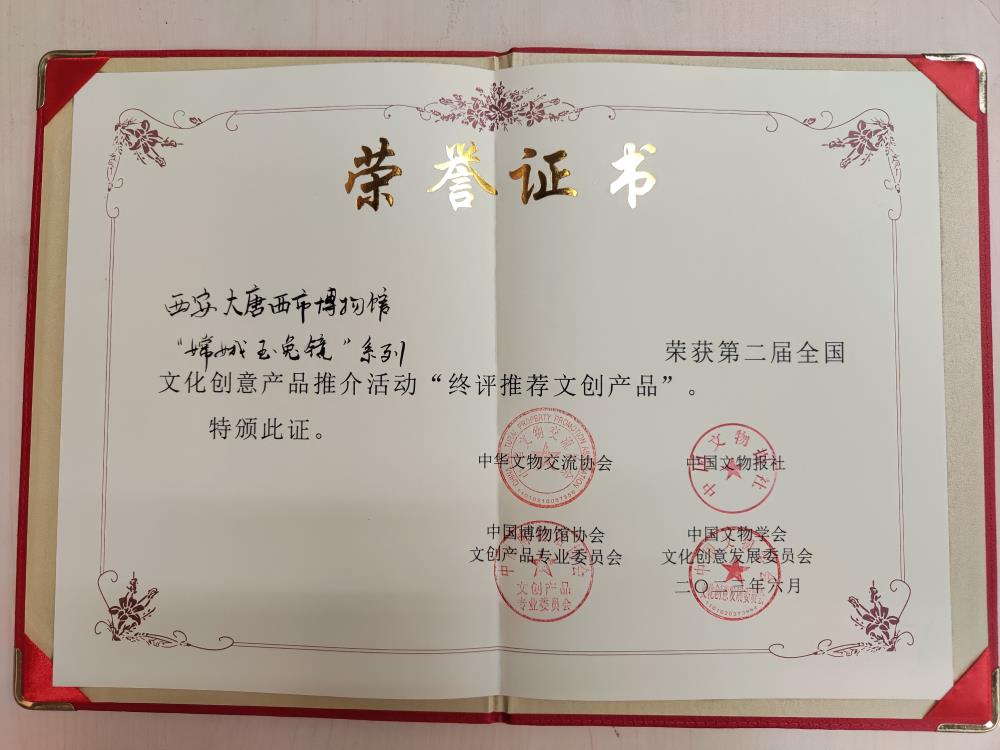 荣誉证书
西安大唐西市博物馆
“嫦娥玉兔镜”系列
荣获第二届全国
文化创意产品推介活动“终评推荐文创产品”。
特颁此证。
中华文物交流协会
中国文物报社
中国博物馆协会
文创产品专业委员会
中国文物学会
文化创意发展委员会
年六月
中国文物报社
文创产品
专业委员会
文化创意发展委员会